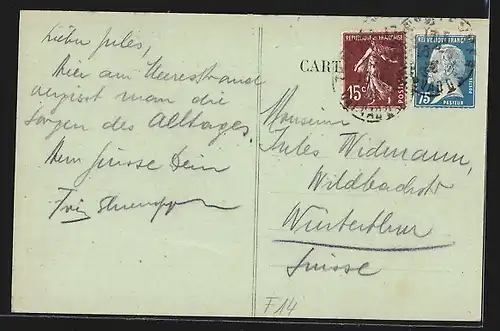 Lieber Jules,
Hier am Meeresstrand
vergisst man die
Sorgen des Alltages.
Dein
Fritz
CART
REPUBLIQUE FRANÇAISE
15c
POSTES
REPUBLIQUE FRANÇAISE
75c
POSTES
PASTEUR
Monsieur
Jules Widmann,
Wildbachstr
Winterthur
Suisse
F14